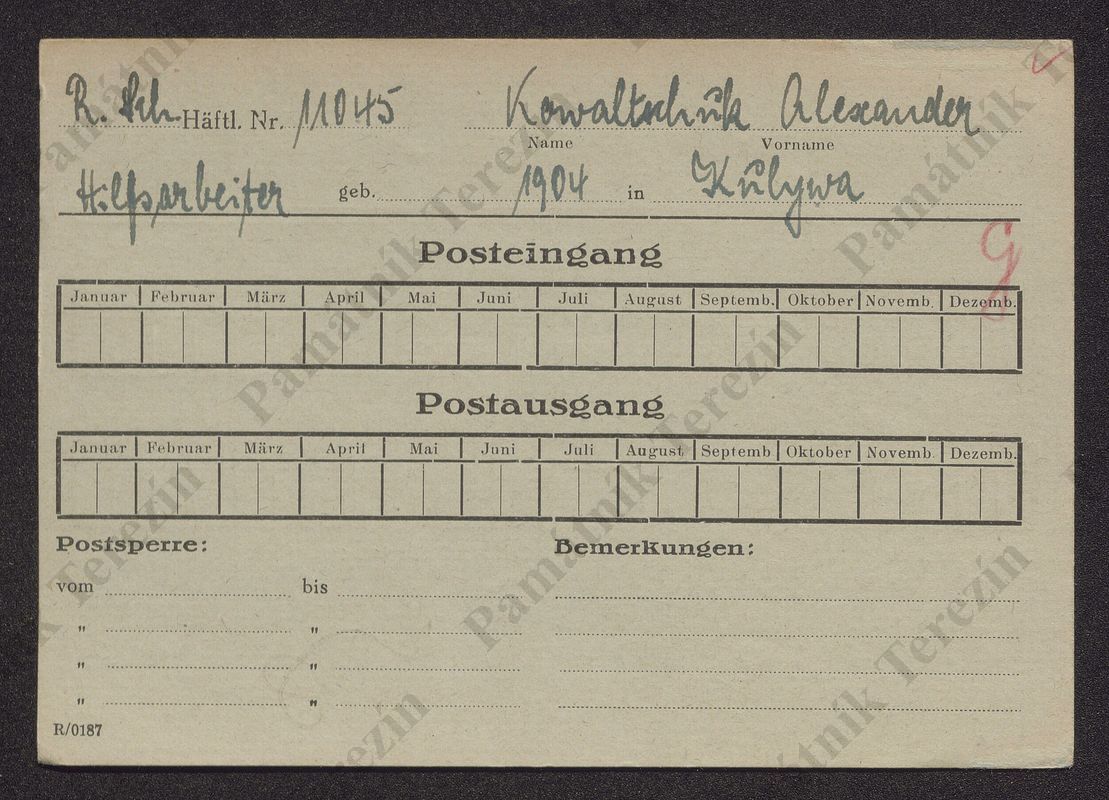 R. Sch. Häftl. Nr. 11045 Kowaltschuk Alexander
Name Vorname
Hilfsarbeiter geb. 1904 in Kulywa
Posteingang
Januar Februar März April Mai Juni Juli August Septemb. Oktober Novemb. Dezemb.
Postausgang
Januar Februar März April Mai Juni Juli August Septemb Oktober Novemb. Dezemb.
Postsperre: Bemerkungen:
vom bis
" "
" "
" "
R/0187
Památník Terezín